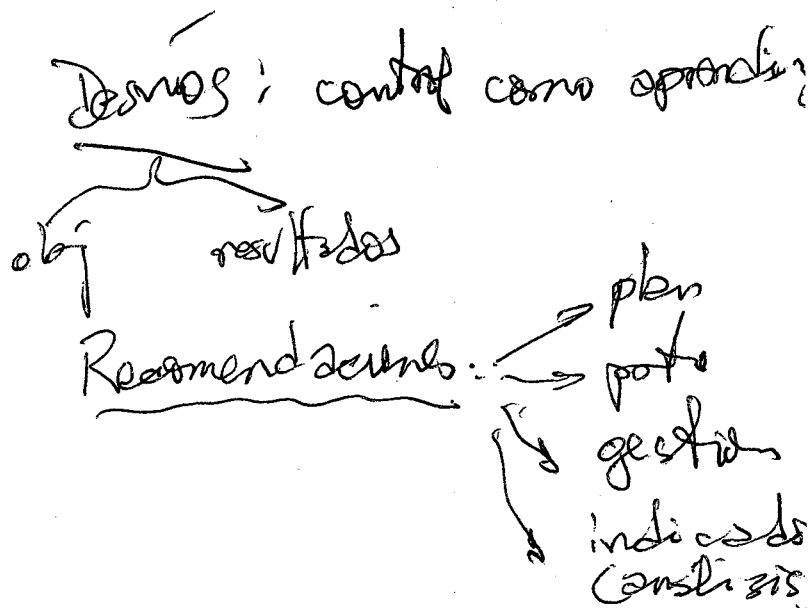 Desvíos: control como aprendi
obj resultados
Recomendaciones:
plan
ppto
gestión
indicado
(análisis